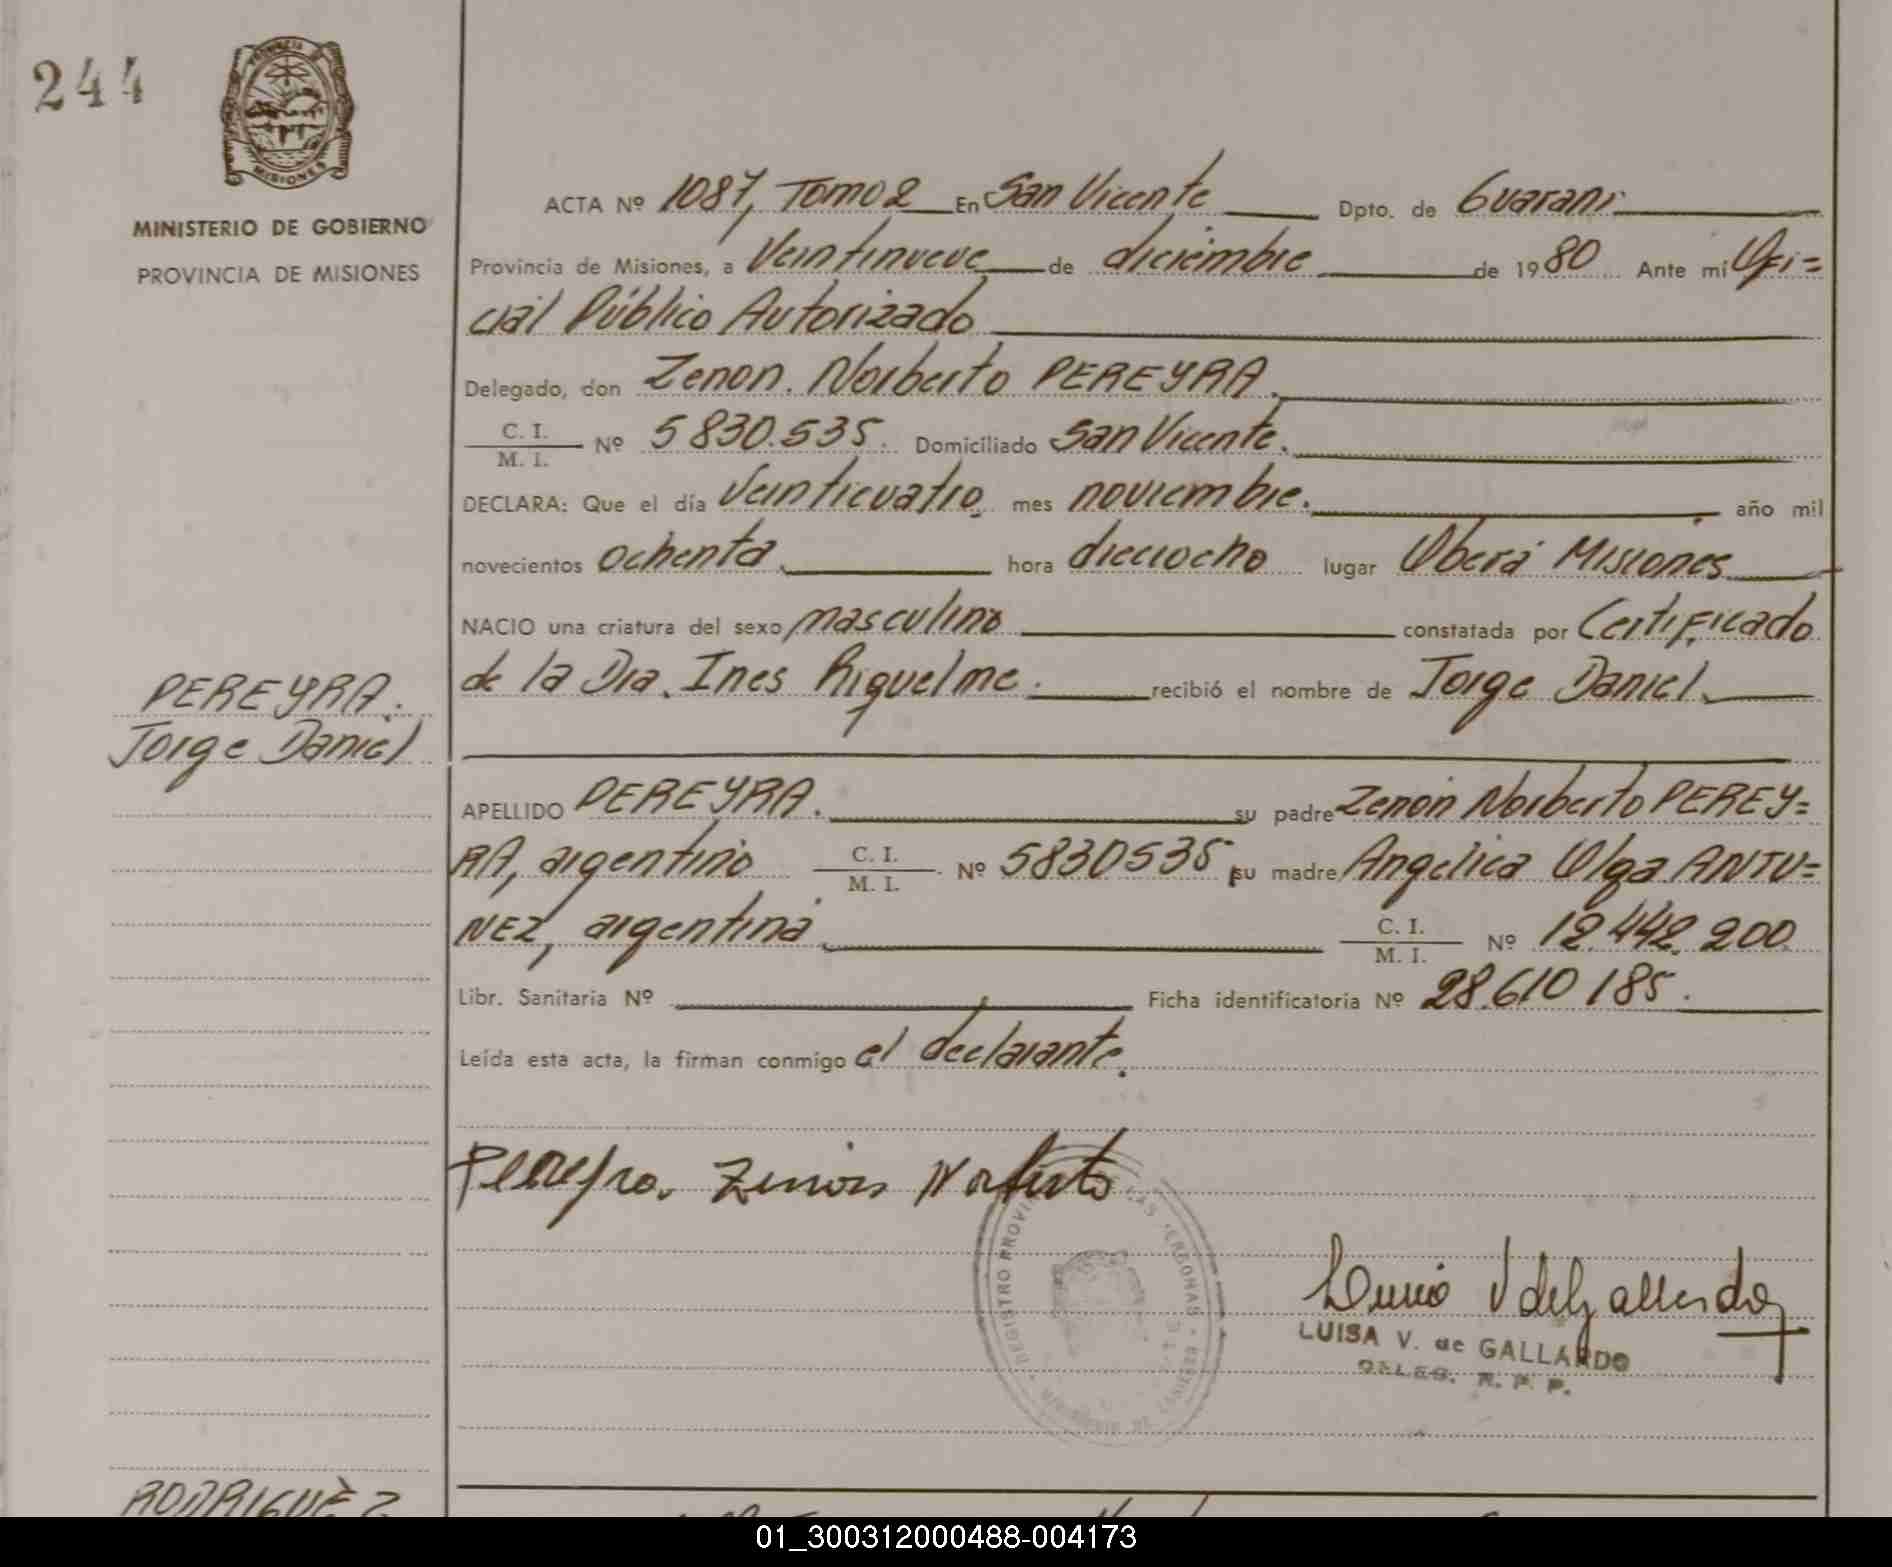 244
PROVINCIA
MISIONES
MINISTERIO DE GOBIERNO
PROVINCIA DE MISIONES
ACTA Nº 1087, Tomo 2 En San Vicente Dpto. de Guaraní
Provincia de Misiones, a Veintinueve de diciembre de 1980 Ante mí Ofi=
cial Público Autorizado
Delegado, don Zenon Norberto PEREYRA.
C. I.
M. I. Nº 5830.535. Domiciliado San Vicente.
DECLARA: Que el día Veinticuatro mes noviembre. año mil
novecientos ochenta hora dieciocho lugar Oberá Misiones
NACIO una criatura del sexo masculino constatada por Certificado
de la Dra. Ines Riquelme. recibió el nombre de Jorge Daniel
PEREYRA.
Jorge Daniel
APELLIDO PEREYRA. su padre Zenón Norberto PEREY=
RA, argentino C. I. M. I. Nº 5830535 su madre Angelica Olga ANTU=
NEZ, argentina C. I. M. I. Nº 12.442.200
Libr. Sanitaria Nº Ficha identificatoria Nº 28.610 185.
Leída esta acta, la firman conmigo el declarante.
Pereyra. Zenon Norberto
REGISTRO PROVINCIAL DE LAS PERSONAS
Luisa V de Gallardo
LUISA V. de GALLARDO
DELEG. R. P. P.
RODRIGUEZ
01_300312000488-004173